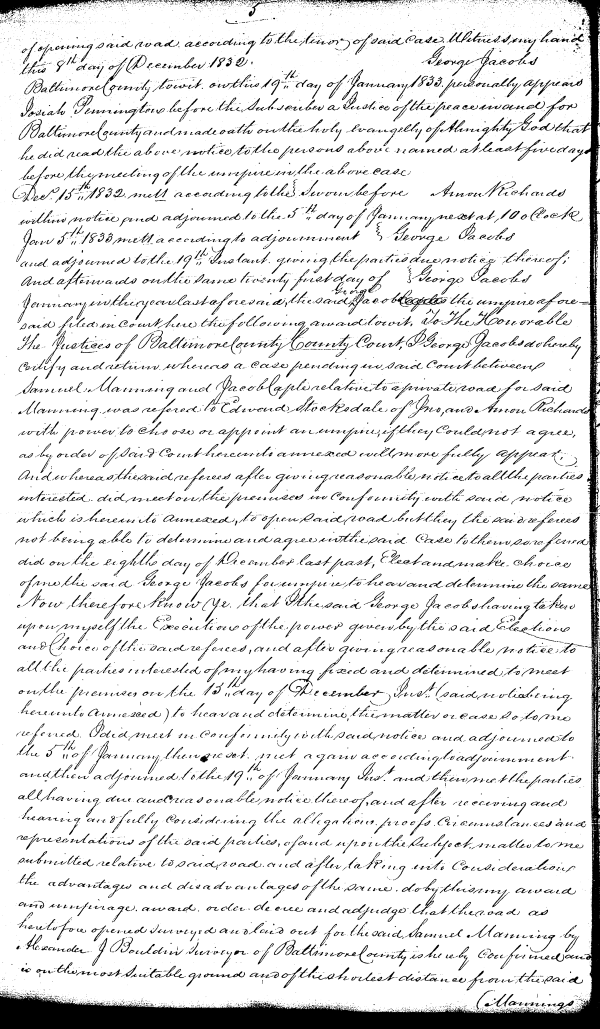 5
of opening said road according to the tenor of said case. Witness, my hand
this 8th day of December 1832. George Jacobs
Baltimore County towit. on this 19th day of January 1833. personally appears
Josiah Pennington before the Subscriber a Justice of the peace in and for
Baltimore County and made oath on the holy Evangelly of Almighty God that
he did read the above notice to the persons above named at least five days
before the meeting of the umpire in the above case
Decr. 15th 1832 mett according to the } Sworn before Amon Richards
within notice and adjourned to the 5th day of January next at 10 o Clock
Jan 5th 1833 mett according to adjournment } George Jacobs
and adjourned to the 19th Instant. giving the parties due notice thereof;
And afterwards on the same twenty first day of } George Jacobs
January in the year last aforesaid, the said George Jacobs the umpire afore=
said filed in Court here the following award to wit. To The Honorable
The Justices of Baltimore County County Court, I George Jacobs do hereby
Certify and return whereas a case pending in said Court between
Samuel Manning and Jacob Caple relative to a private road for said
Manning was refered to Edward Stocksdale of Jno, and Amon Richards
with power to choose or appoint an umpire, if they Could not agree,
as by order of said Court hereunto annexed will more fully appear.
And whereas the said referees after giving reasonable notice to all the parties
interested. did meet on the premises in Conformity with said notice
which is hereunto annexed, to open said road but they the said referees
not being able to determine and agree in the said Case to them so referred
did on the eighth day of December last past, Elect and make choice
of me the said George Jacobs for umpire to hear and determine the same
Now therefore know ye that I the said George Jacobs having taken
upon myself the Execution of the power given by the said Election
and Choice of the said referees, and after giving reasonable notice to
all the parties interested of my having fixed and determined to meet
on the premises on the 15th day of December Inst. (said notice being
hereunto annexed) to hear and determine the matter or case so to me
referred. I did meet in conformity with said notice and adjourned to
the 5th of January then next. met again according to adjournment
and then adjourned to the 19th of January Inst. and then met the parties
all having due and reasonable notice thereof, and after receiving and
hearing and fully considering the alligations, proofs, Circumstances and
representations of the said parties, of and upon the subject matter to me
submitted relative to said road and after taking into Consideration
the advantages and disadvantages of the same. do by this my award
and umpirage. award. order. decree and adjudge that the road as
heretofore opened surveyed and laid out for the said Samuel Manning by
Alexander J Bouldin Surveyor of Baltimore County is hereby Confirmed and
is on the most suitable ground and of the shortest distance from the said
(Mannings